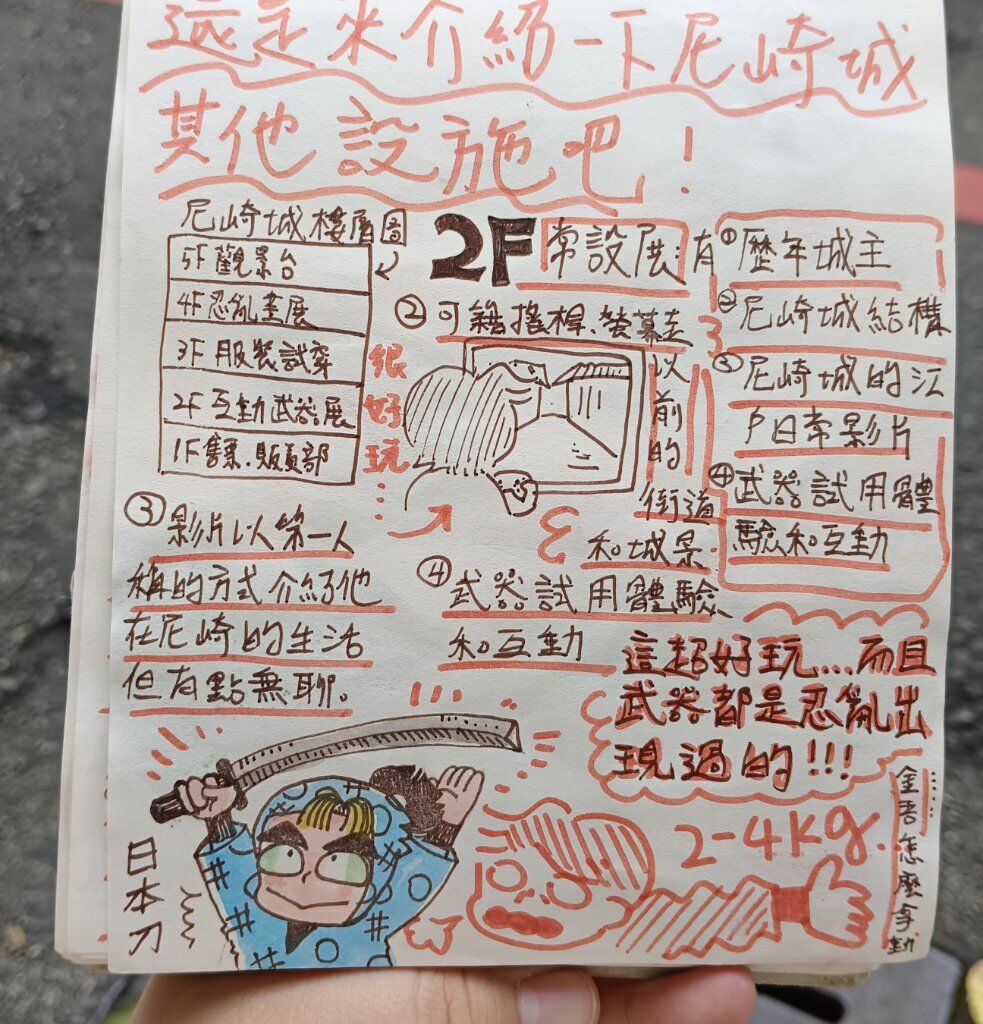 還是來介紹一下尼崎城
其他設施吧！
尼崎城樓層圖
5F觀景台
4F忍亂畫展
3F服裝試穿
2F互動武器展
1F售票.販賣部
2F 常設展:有
①歷年城主
②尼崎城結構
③尼崎城的江
戶日常影片
④武器試用體
驗和互動
②可籍搖桿.螢幕走
以
前
的
街道
和城景.
很
好
玩
…
③影片以第一人
稱的方式介紹他
在尼崎的生活
但有點無聊。
④武器試用體驗
和互動
這超好玩....而且
武器都是忍亂出
現過的!!!
日
本
刀
2-4kg.
金
吾
怎
麼
拿
動